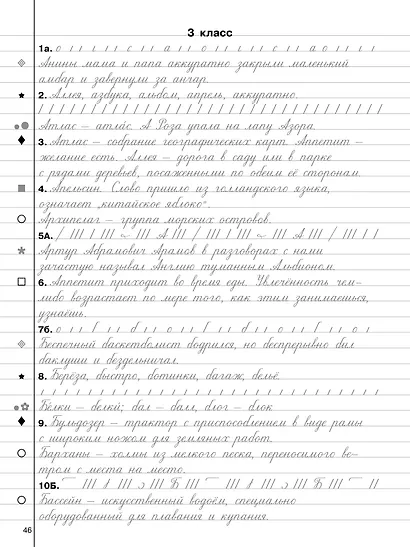 3 класс
1а.
Анины мама и папа аккуратно закрыли маленький
амбар и завернули за ангар.
2. Аллея, азбука, альбом, апрель, аккуратно.
Атлас – атлас. А Роза упала на лапу Азора.
3. Атлас – собрание географических карт. Аппетит –
желание есть. Аллея – дорога в саду или в парке
с рядами деревьев, посаженными по обеим её сторонам.
4. Апельсин. Слово пришло из голландского языка,
означает „китайское яблоко“.
Архипелаг – группа морских островов.
5А.
Артур Абрамович Арамов в разговорах с нами
зачастую называл Англию туманным Альбионом.
6. Аппетит приходит во время еды. Увлечённость чем-
либо возрастает по мере того, как этим занимаешься,
узнаёшь.
7б.
Беспечный баскетболист бодрился, но беспрерывно бил
баклуши и бездельничал.
8. Берёза, быстро, ботинки, багаж, бельё.
Белки – белкй; бал – балл, блог – блок
9. Бульдозер – трактор с приспособлением в виде рамы
с широким ножом для земляных работ.
Барханы – холмы из мелкого песка, переносимого ве-
тром с места на место.
10Б.
Бассейн – искусственный водоём, специально
оборудованный для плавания и купания.
46